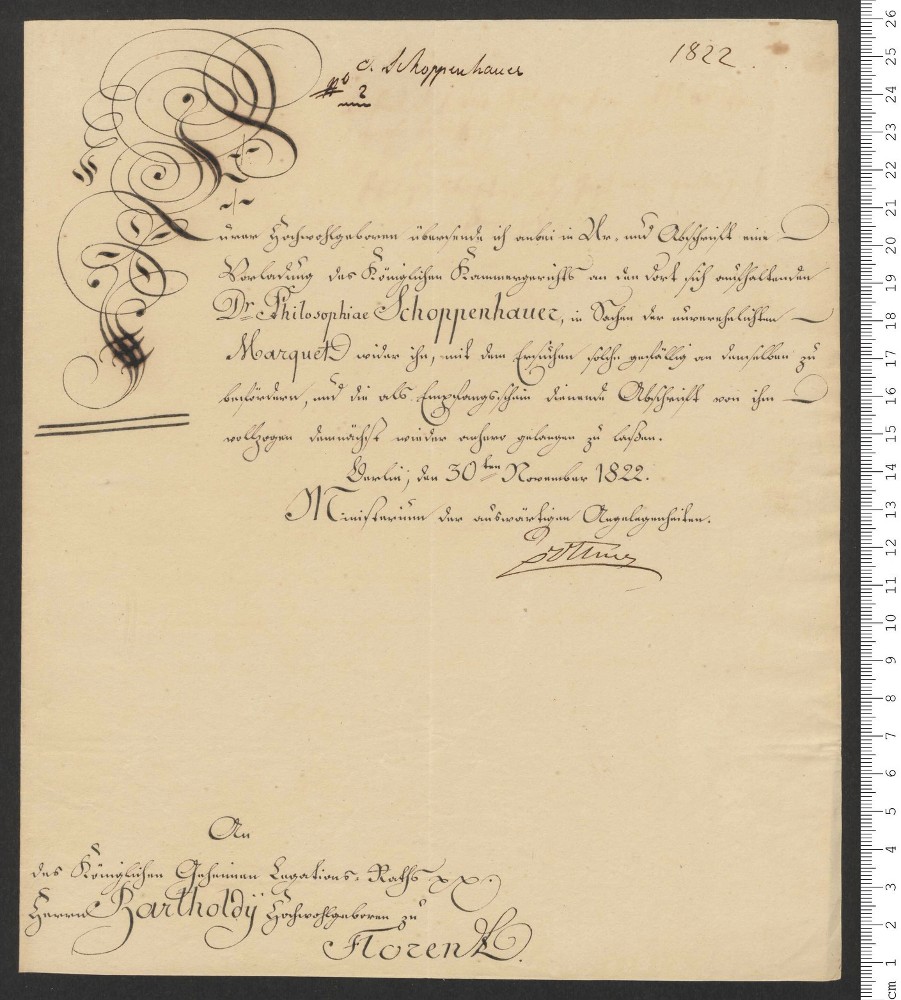 d. Schoppenhauer
1822.
No 2
Eurer Hochwohlgeboren übersende ich anbei in Ur- und Abschrift eine
Vorladung des Königlichen Kammergerichts an den dort sich aufhaltenden
Dr Philosophiae Schoppenhauer, in Sachen der unverehelichten
Marquet wider ihn, mit dem Ersuchen solche gefällig an denselben zu
befördern, und die als Empfangsschein dienende Abschrift von ihm
vollzogen demnächst wieder anhero gelangen zu laßen.
Berlin, den 30ten November 1822.
Ministerium der auswärtigen Angelegenheiten.
An
des Königlichen Geheimen Legations-Raths pp.
Herrn Bartholdÿ Hochwohlgeboren zu
Florenz.
cm 1 2 3 4 5 6 7 8 9 10 11 12 13 14 15 16 17 18 19 20 21 22 23 24 25 26